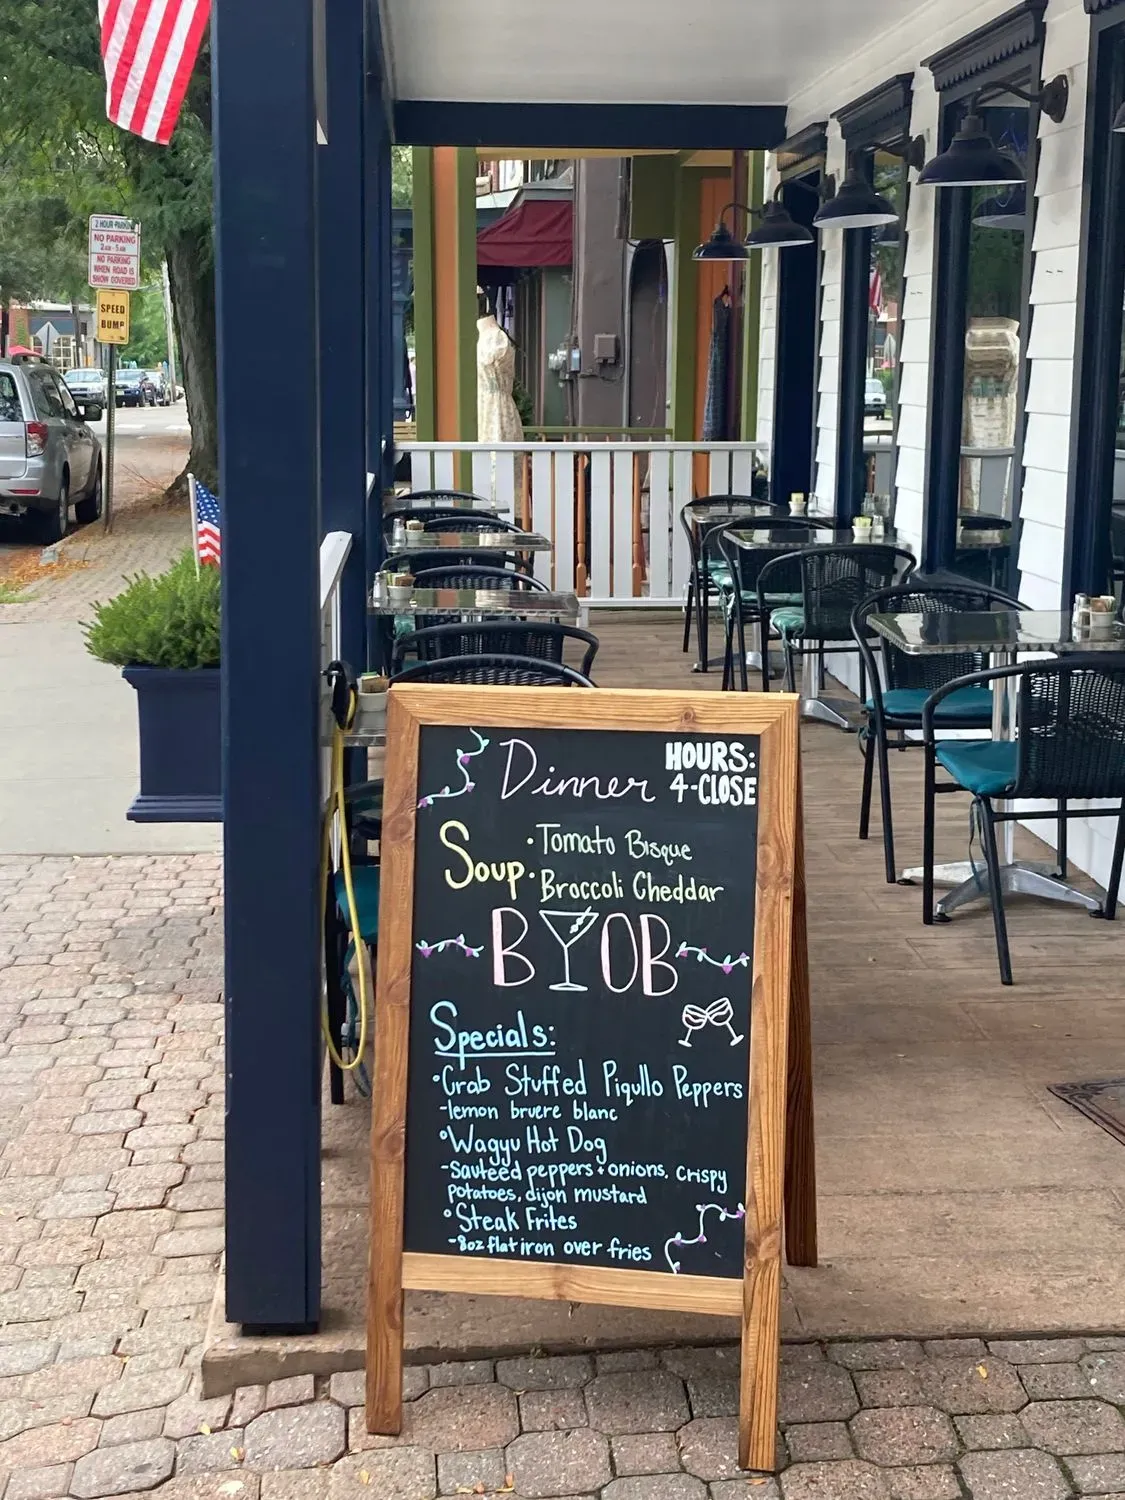 2 HOUR PARKING
NO PARKING
2AM - 5AM
NO PARKING
WHEN ROAD IS
SNOW COVERED
SPEED
BUMP
Dinner
HOURS:
4-CLOSE
Soup
• Tomato Bisque
• Broccoli Cheddar
BYOB
Specials:
• Crab Stuffed Piqullo Peppers
- lemon bruere blanc
° Wagyu Hot Dog
- Sauteed peppers + onions, crispy
potatoes, dijon mustard
° Steak Frites
- 8oz flat iron over fries